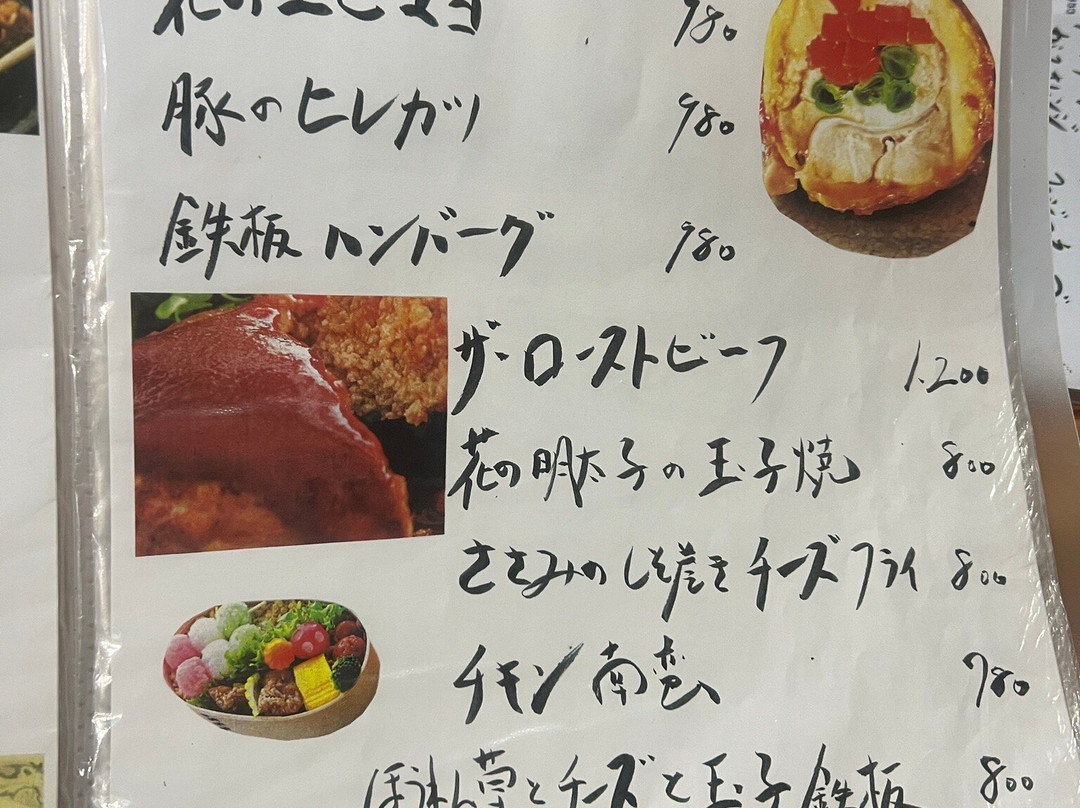 花のエビマヨ 980
豚のヒレカツ 980
鉄板ハンバーグ 980
ザ・ローストビーフ 1.200
花の明太子の玉子焼 800
ささみのしそ巻きチーズフライ 800
チキン南蛮 780
ほうれん草とチーズと玉子鉄板 800